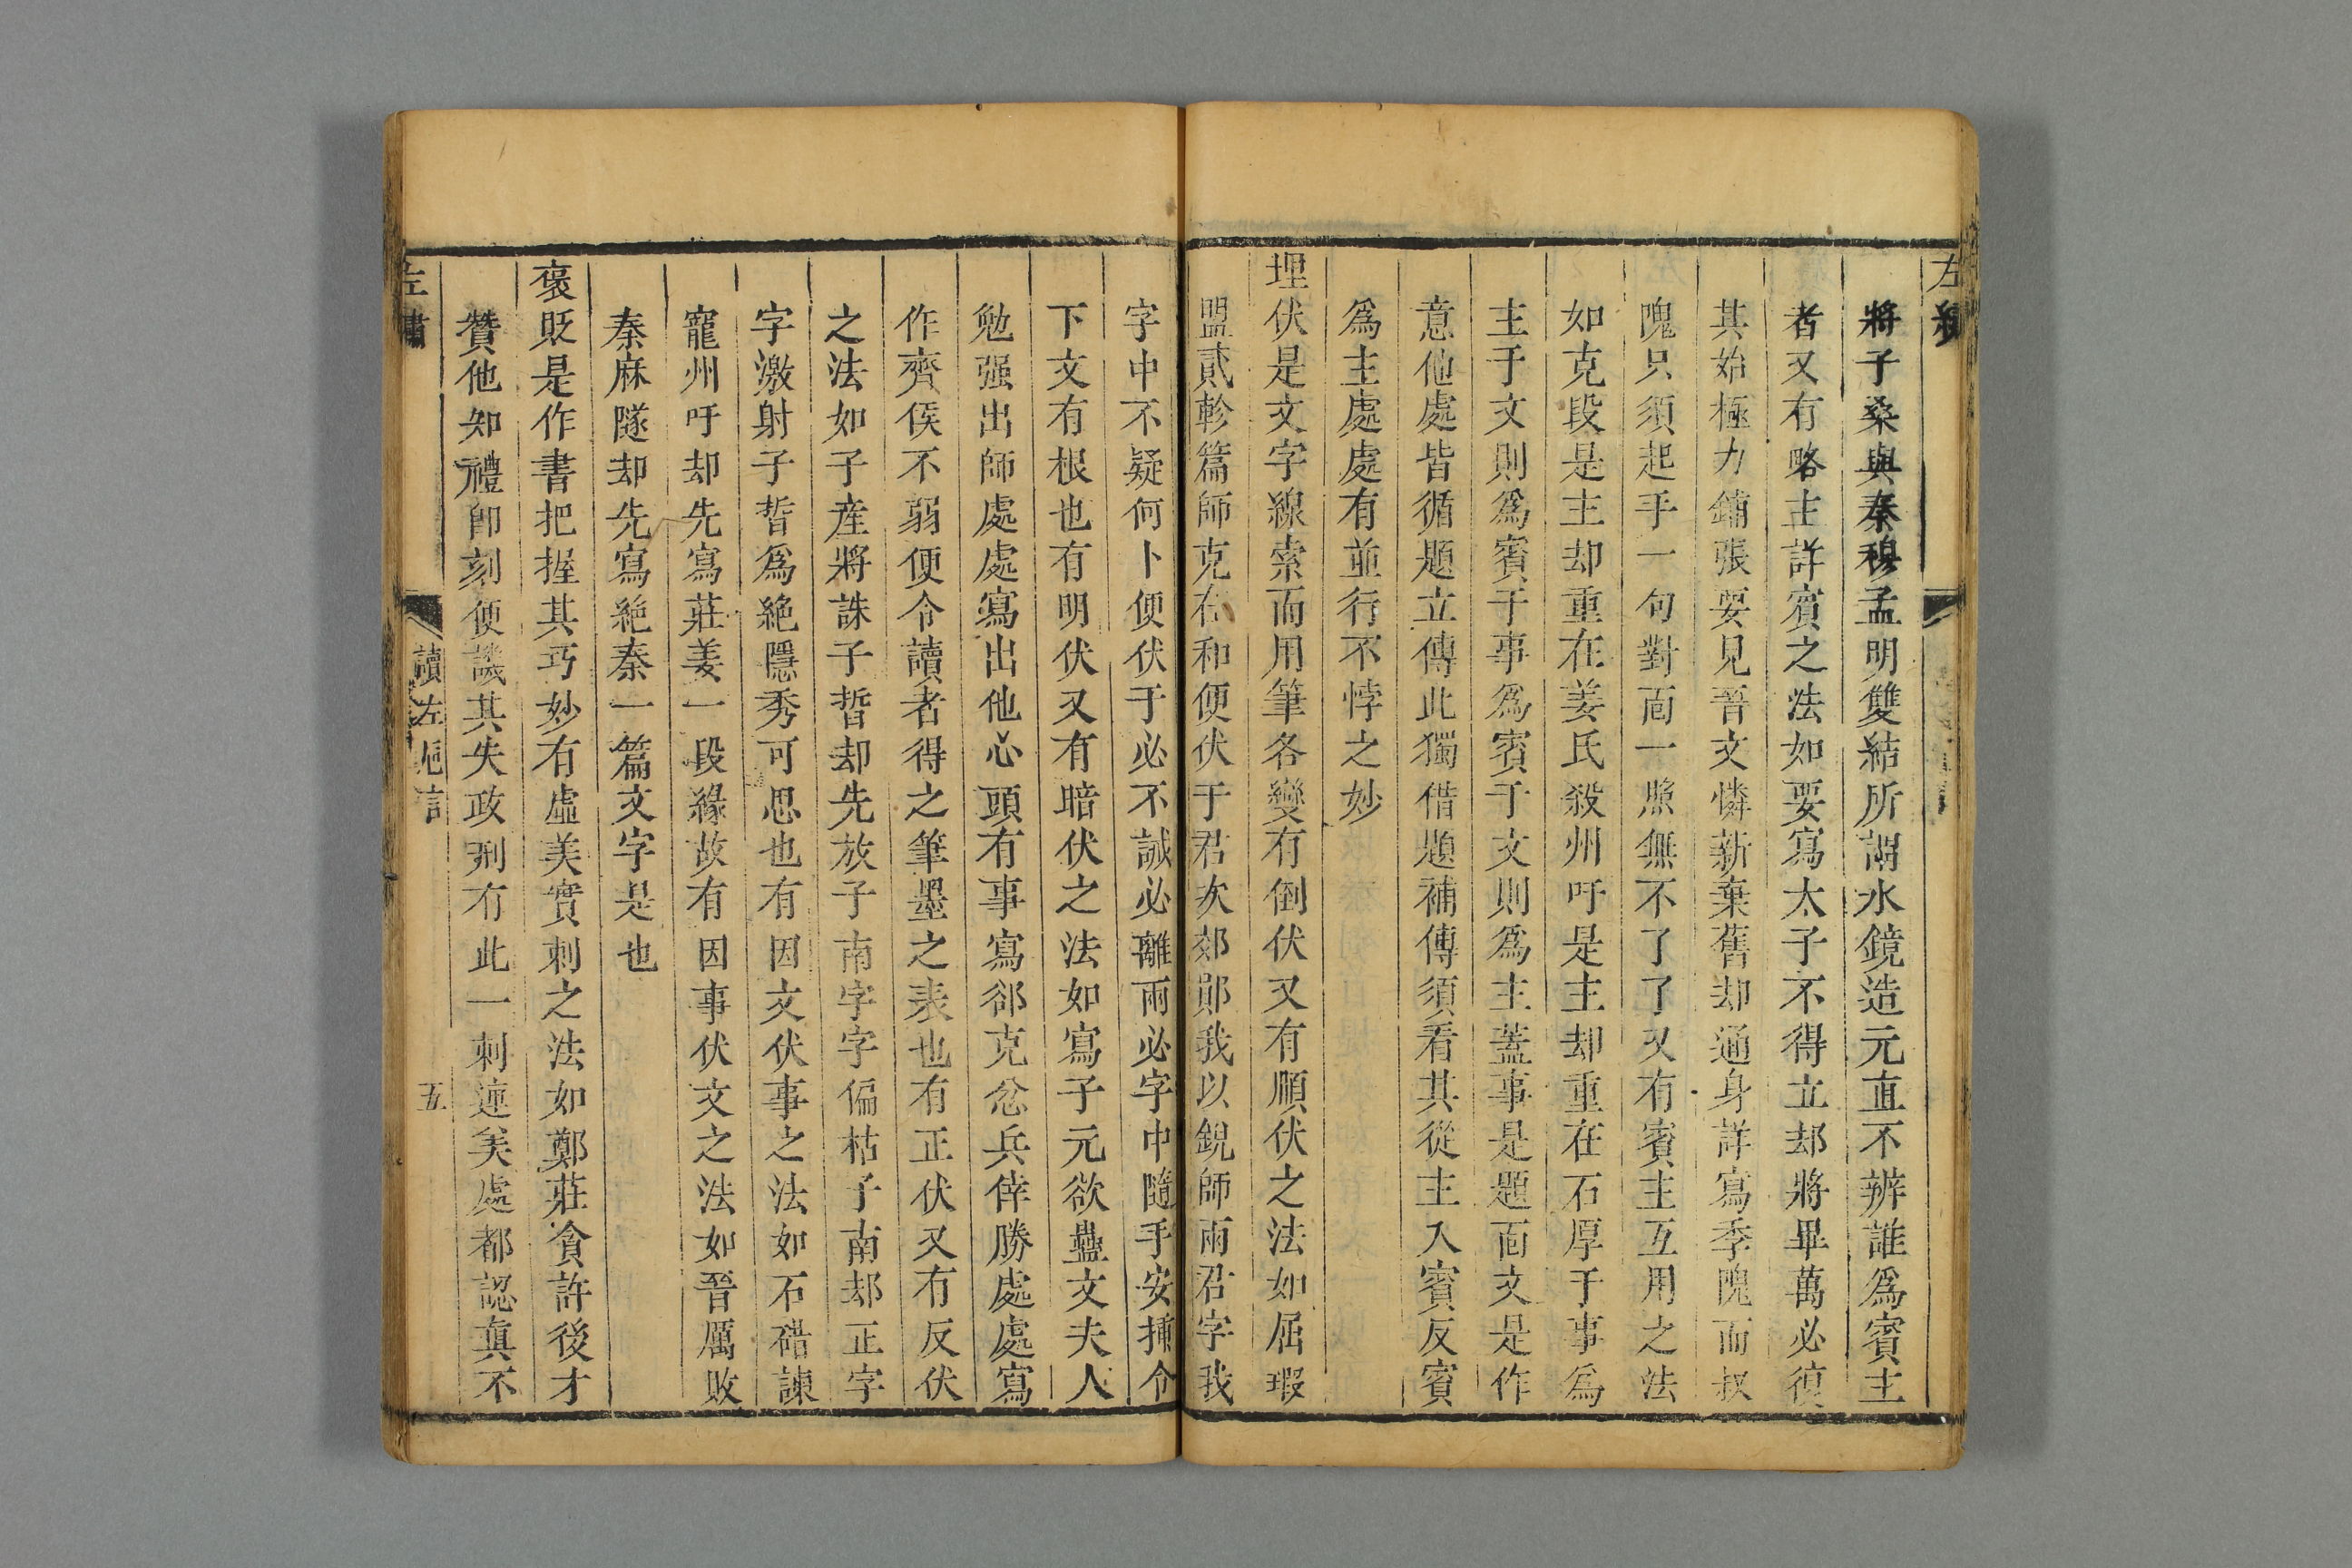 左繡
將子桑與秦穆孟明雙結所謂水鏡造元直不辨誰爲賓主
者又有略主詳賓之法如要寫太子不得立却將畢萬必復
其始極力鋪張要見晉文憐新棄舊却通身詳寫季隗而叔
隗只須起手一句對面一照無不了了又有賓主互用之法
如克段是主却重在姜氏殺州吁是主却重在石厚于事爲
主于文則爲賓于事爲賓于文則爲主蓋事是題面文是作
意他處皆循題立傳此獨借題補傳須看其從主入賓反賓
爲主處處有並行不悖之妙
埋伏是文字線索而用筆各變有倒伏又有順伏之法如屈瑕
盟貳軫篇師克在和便伏于君次郊郧我以銳師兩君字我
字中不疑何卜便伏于必不誠必離兩必字中隨手安揷令
下文有根也有明伏又有暗伏之法如寫子元欲蠱文夫人
勉强出師處處寫出他心頭有事寫郤克忿兵倖勝處處寫
作齊侯不弱便令讀者得之筆墨之表也有正伏又有反伏
之法如子産將誅子晳却先放子南字字偏枯子南却正字
字激射子晳爲絶隱秀可思也有因文伏事之法如石碏諫
寵州吁却先寫莊姜一段緣故有因事伏文之法如晉厲敗
秦麻隧却先寫絶秦一篇文字是也
褒貶是作書把握其巧妙有虛美實刺之法如鄭莊貪許後才
贊他知禮卽刻便譏其失政刑有此一刺連美處都認眞不
左繡
讀左巵言
五